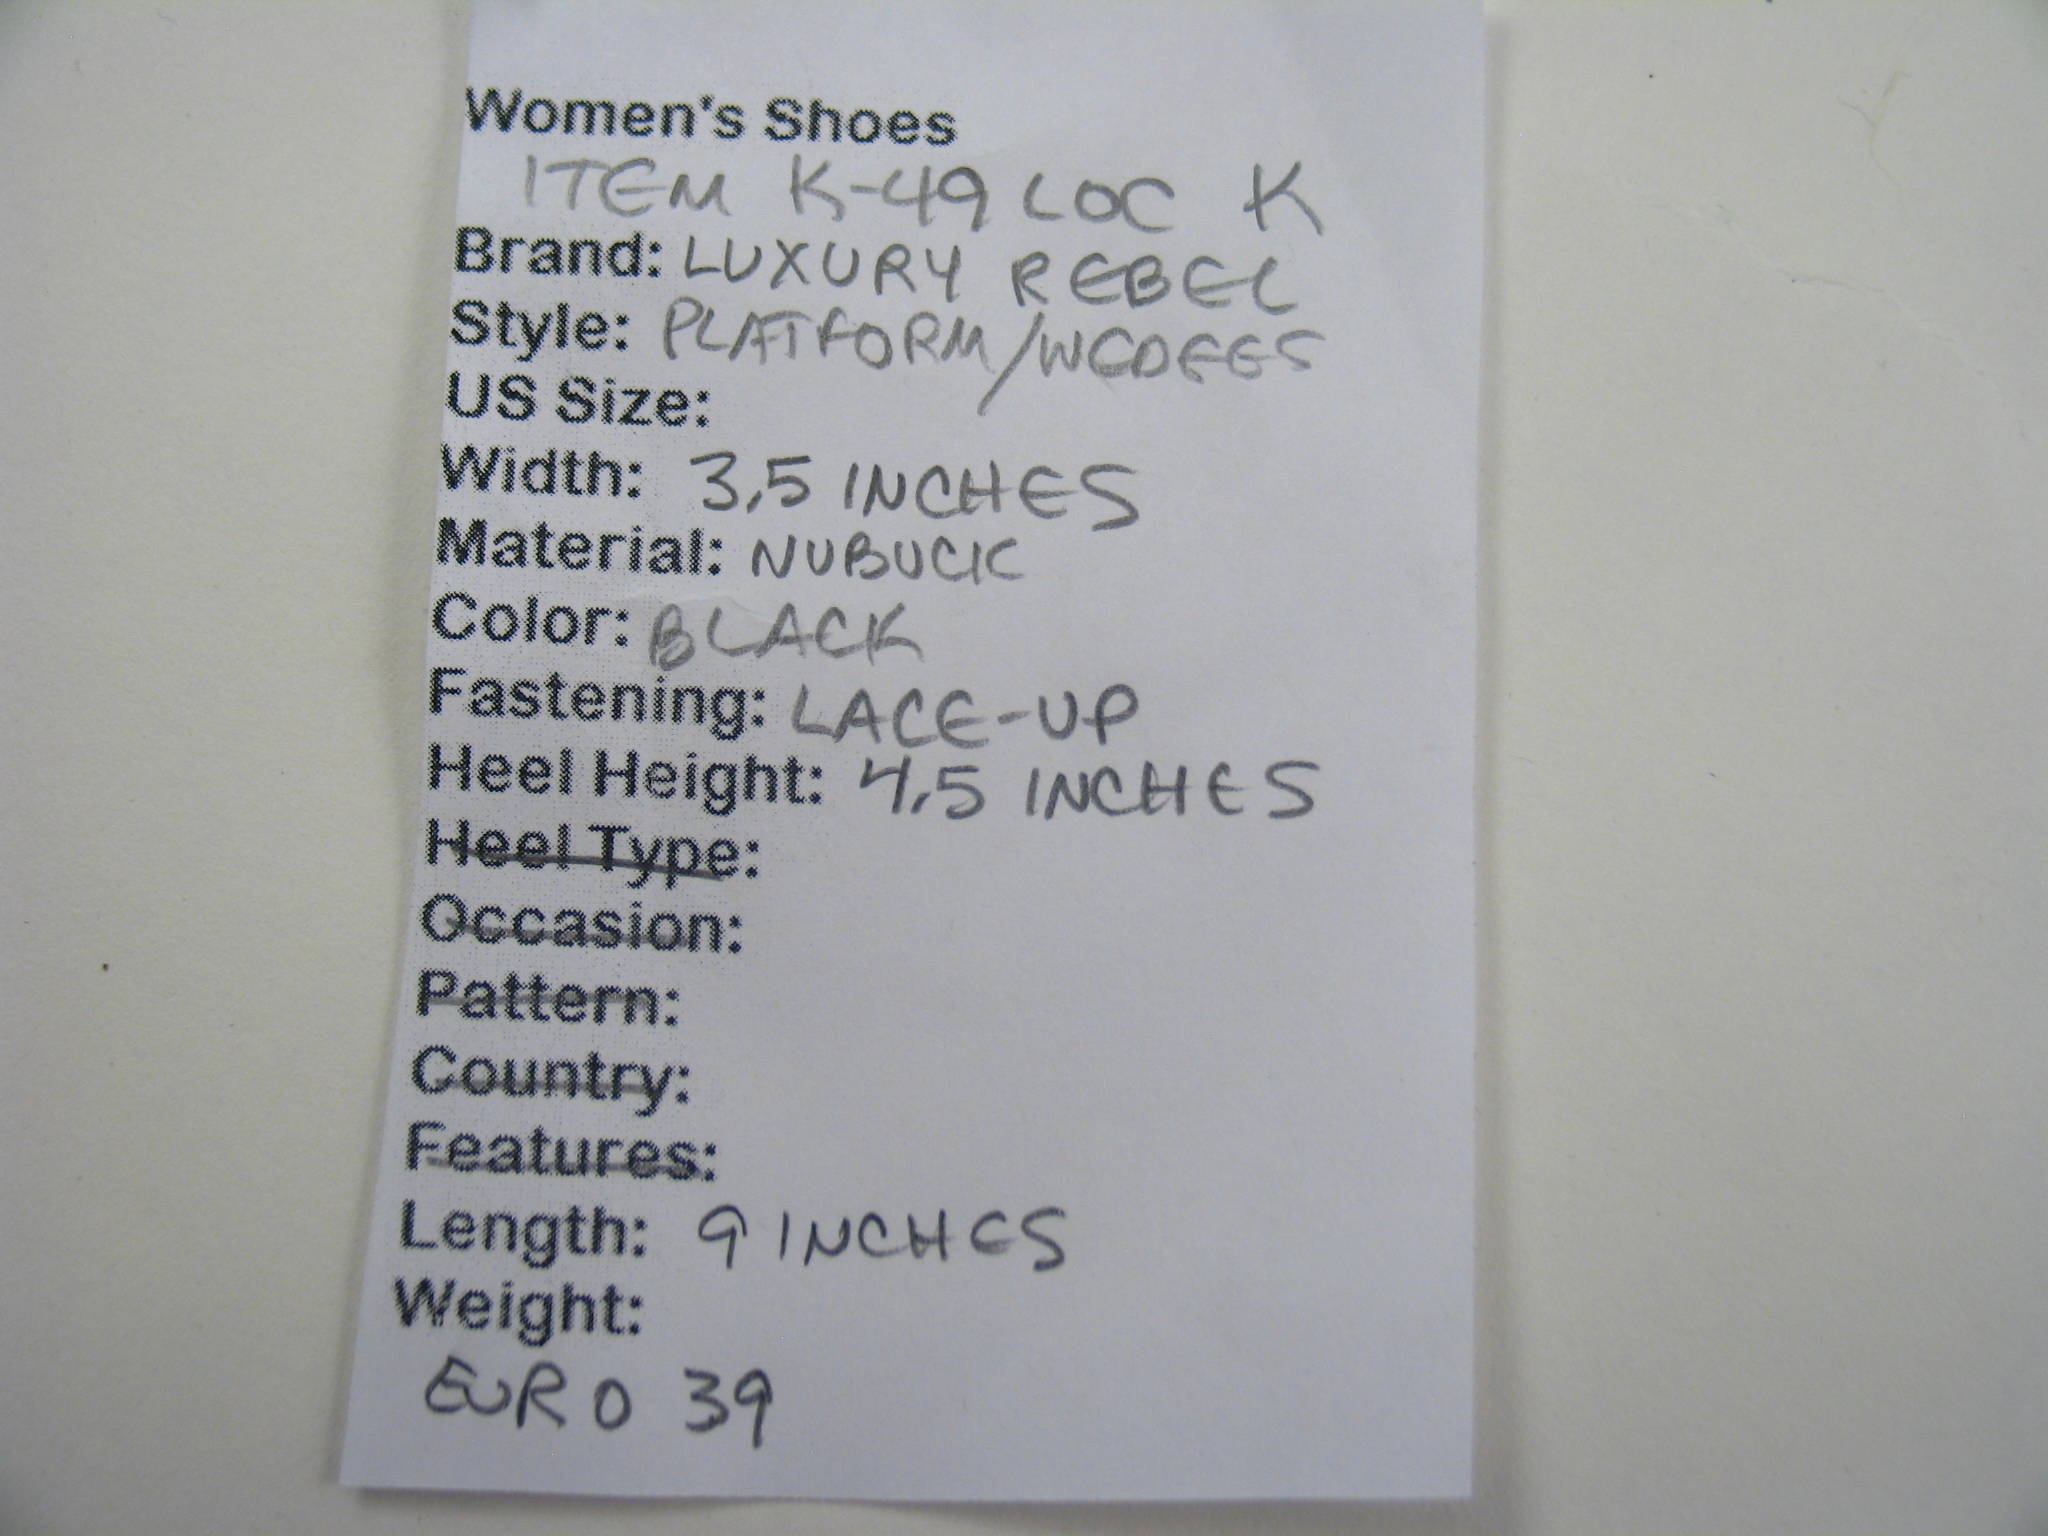 Women's Shoes
ITEM K-49 LOC K
Brand: LUXURY REBEL
Style: PLATFORM/WEDEES
US Size:
Width: 3.5 INCHES
Material: NUBUCK
Color: BLACK
Fastening: LACE-UP
Heel Height: 4.5 INCHES
Heel Type:
Occasion:
Pattern:
Country:
Features:
Length: 9 INCHES
Weight:
EURO 39